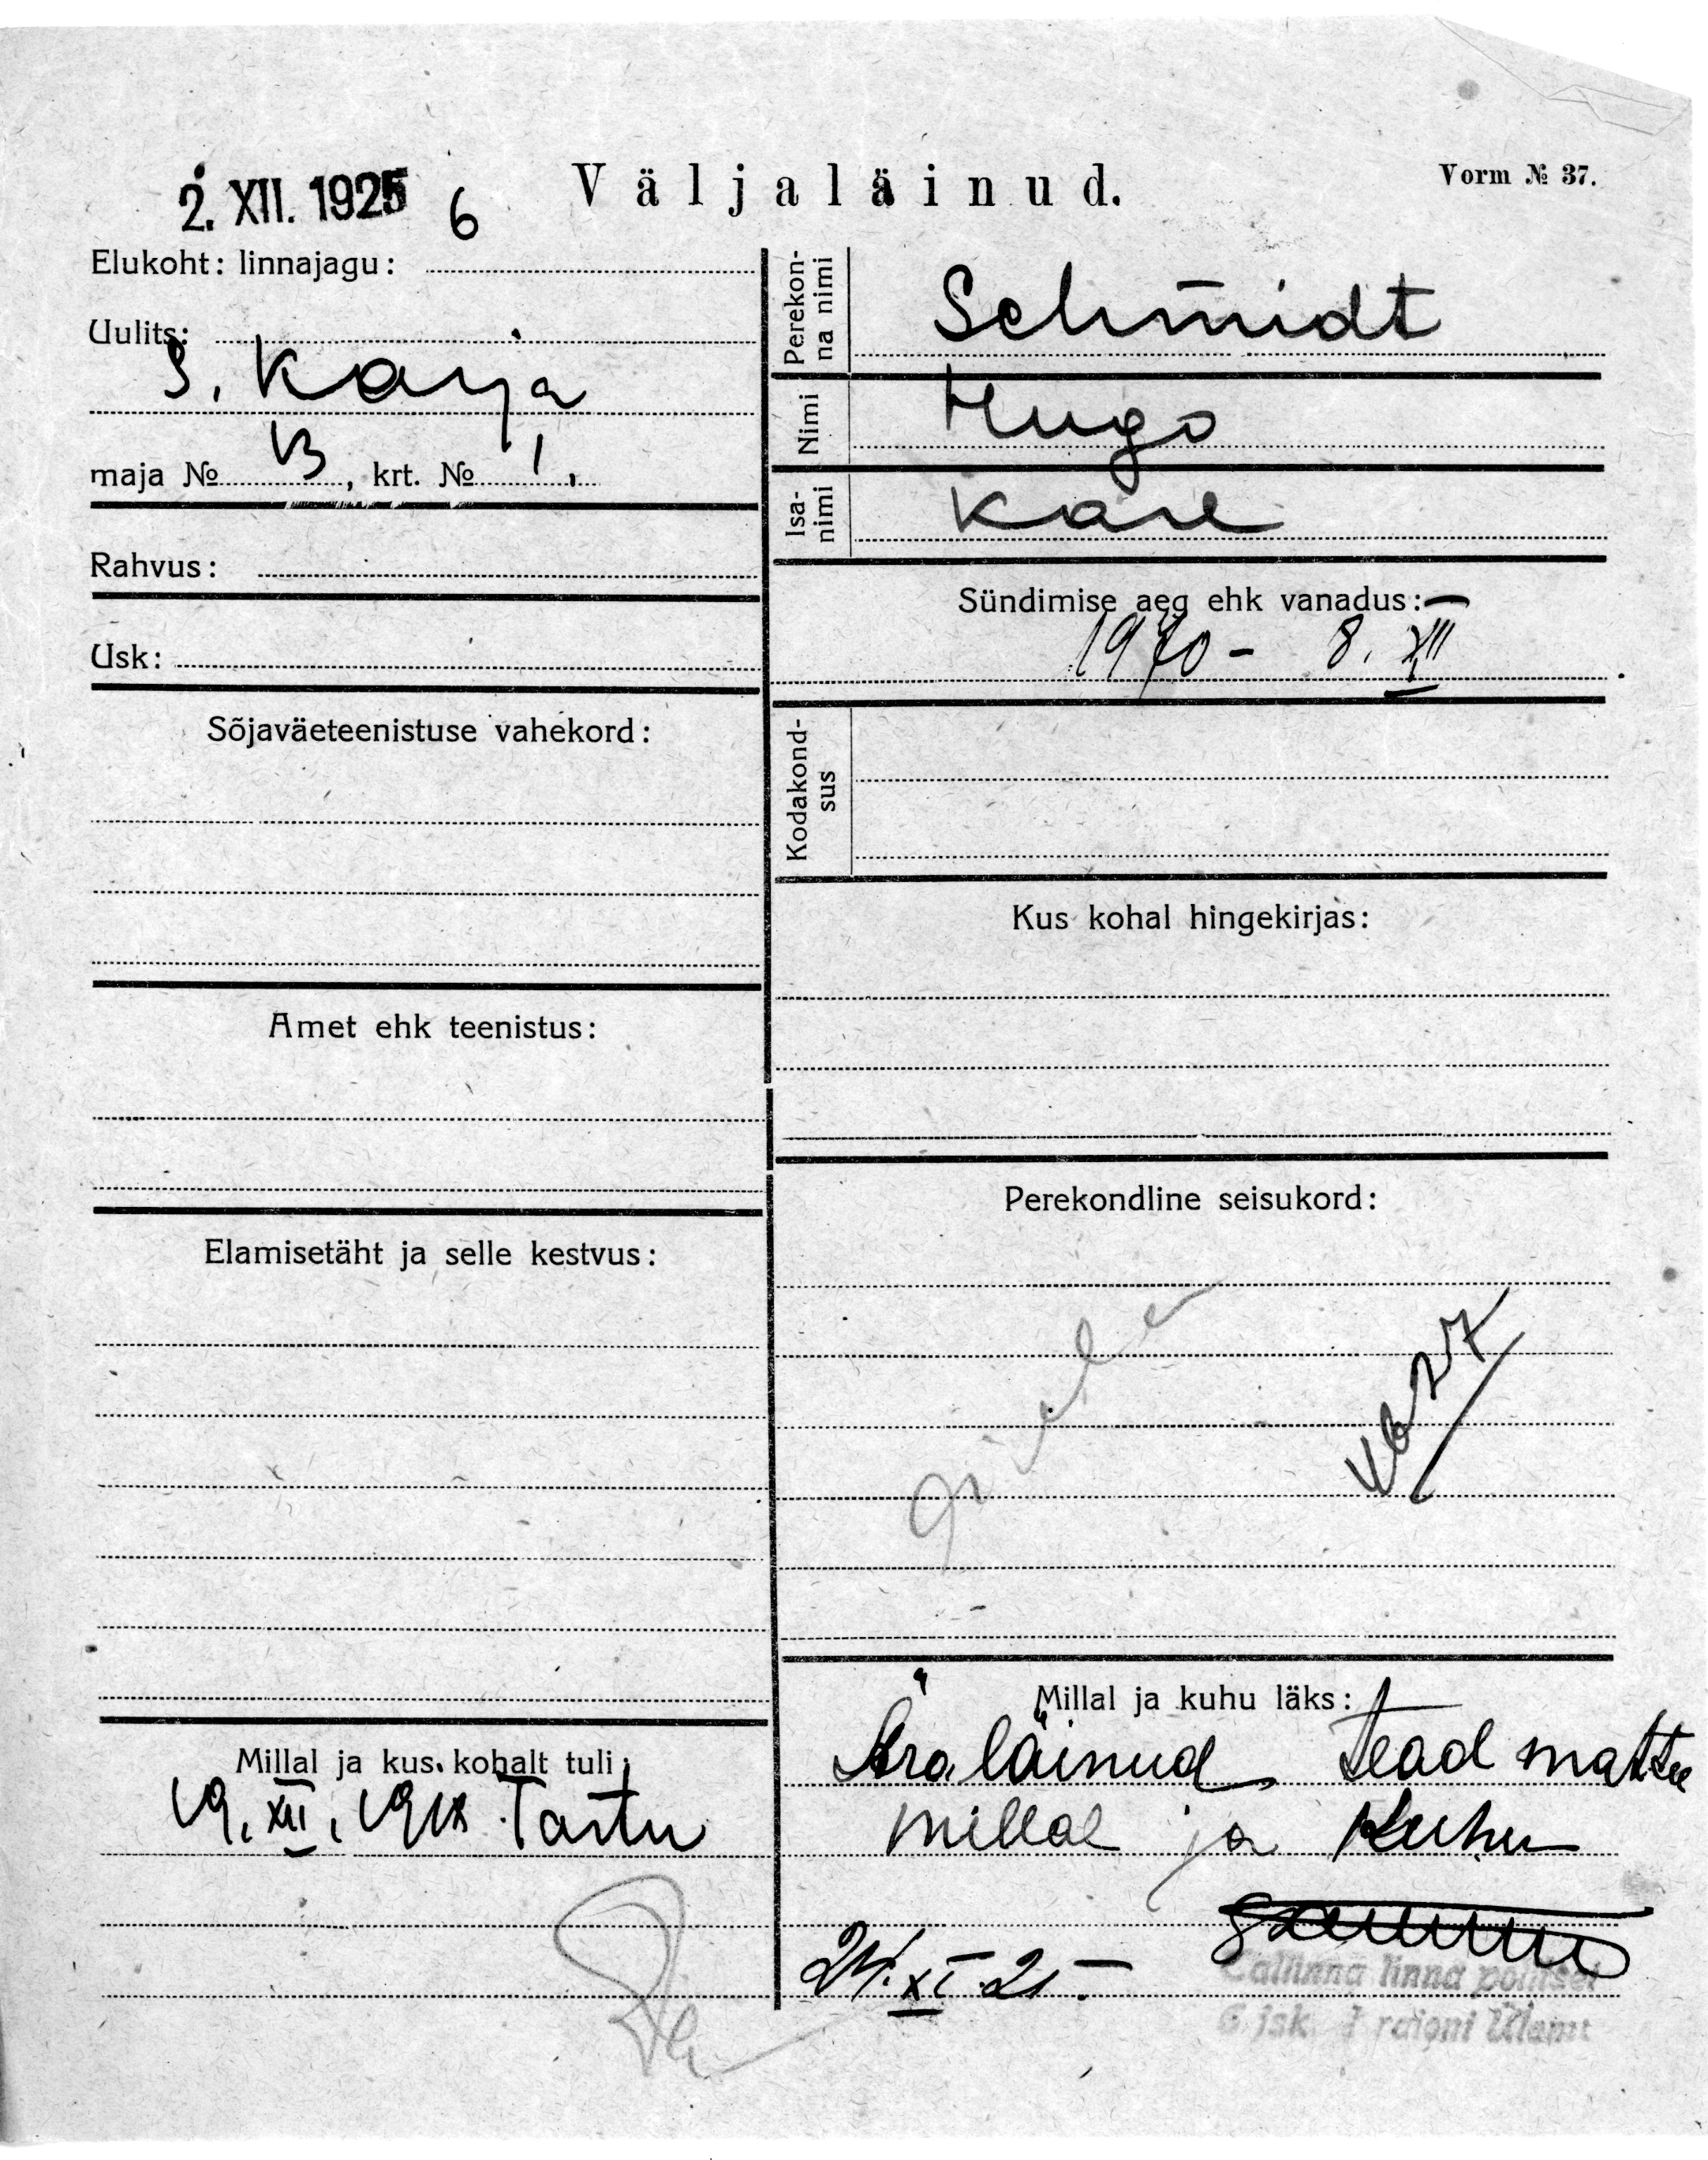 2. XII. 1925 6
Väljaläinud.
Vorm № 37.
Elukoht: linnajagu:
Uulits:
S. Karja
maja № 13, krt. № 1.
Rahvus:
Usk:
Sõjaväeteenistuse vahekord:
Amet ehk teenistus:
Elamisetäht ja selle kestvus:
Millal ja kus kohalt tuli:
19. XII. 1918 Tartu
Perekonna nimi
Schmidt
Nimi
Hugo
Isanimi
Karl
Sündimise aeg ehk vanadus:
8. XII
Kodakondsus
Kus kohal hingekirjas:
Perekondline seisukord:
Millal ja kuhu läks:
Äraläinud teadmatta
millal ja kuhu
24. XI. 25.
Tallinna linna politsei
6 jsk. I raioni Ülem